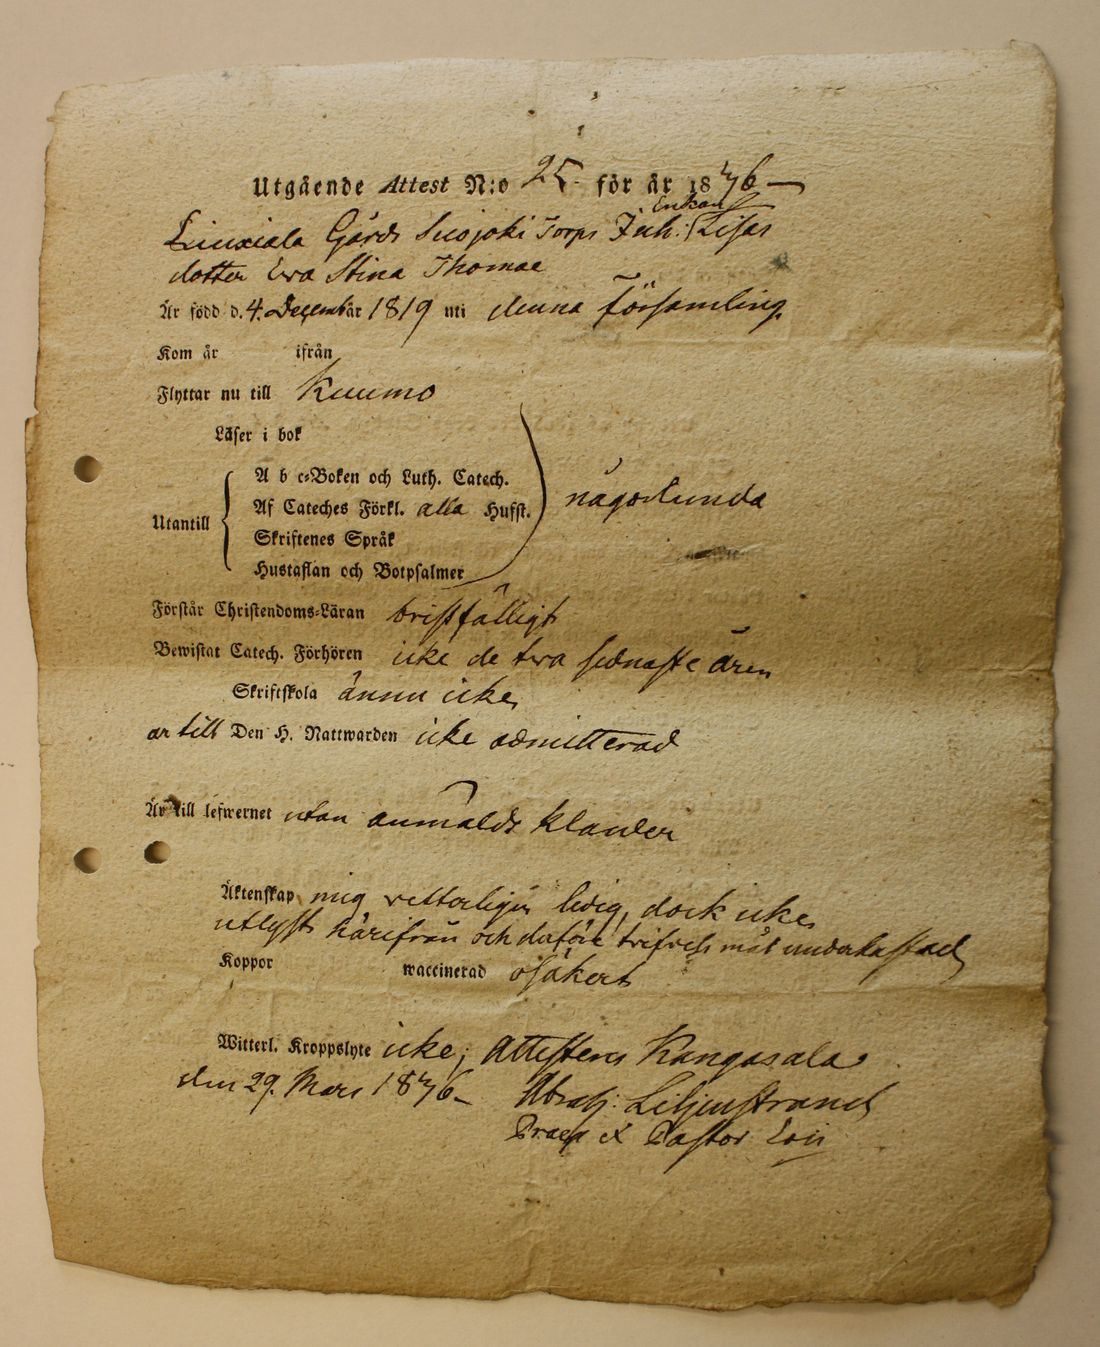 Utgående Attest N:o 25. för år 1846
Enkan
Liuxiala Gårds Suojoki Torps Inh: Lisas
dotter Eva Stina Thomae
Är född d. 4. Decemb år 1819 uti denna Församling.
Kom år ifrån
Flyttar nu till Kuumo
Läser i bok
A b c-Boken och Luth. Catech.
Af Cateches Förkl. alla Hufst. någorlunda
Utantill
Skriftenes Språk
Hustaflan och Botpsalmer
Förstår Christendoms-Läran bristfälligt
Bewistat Catech. Förhören icke de två sednaste åren
Skriftskola ännu icke
är till Den H. Nattwarden icke admitterad
Är till lefwernet utan anmäldt klander
Äktenskap mig vetterligen ledig, dock icke
utlyst härifrån och derföre underkastad
Koppor waccinerad osäkert
Witterl. Kroppslyte icke; Attesterer Kangasala
den 29. Mars 1846 Abrah: Liljenstrand
Praep et Pastor Loci